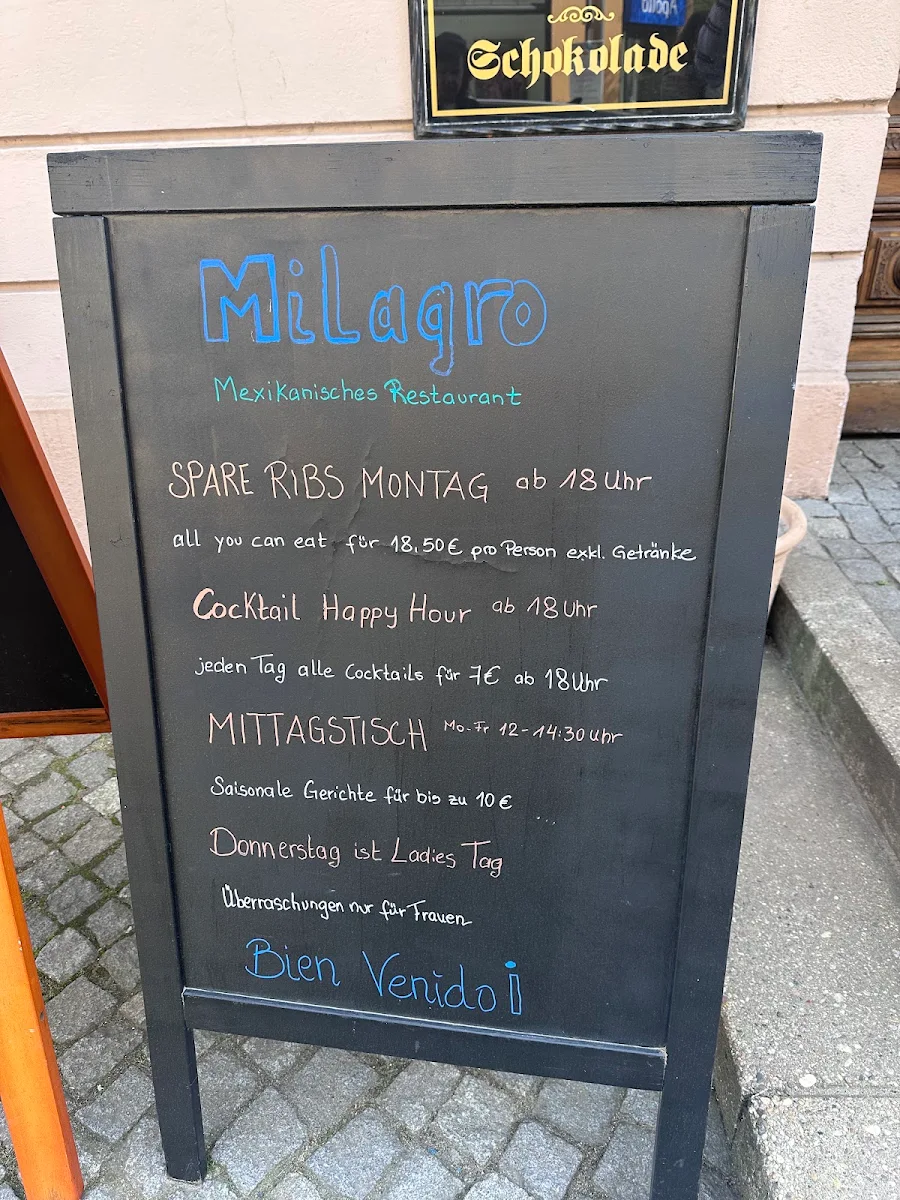 Schokolade
Milagro
Mexikanisches Restaurant
SPARE RiBS MONTAG ab 18 Uhr
all you can eat für 18,50€ pro Person exkl. Getränke
Cocktail Happy Hour ab 18 Uhr
jeden Tag alle Cocktails für 7€ ab 18 Uhr
MITTAGSTISCH Mo-Fr 12-14:30 Uhr
Saisonale Gerichte für bis zu 10€
...
Donnerstag ist Ladies Tag
Überraschungen nur für Frauen
Bien Venido¡